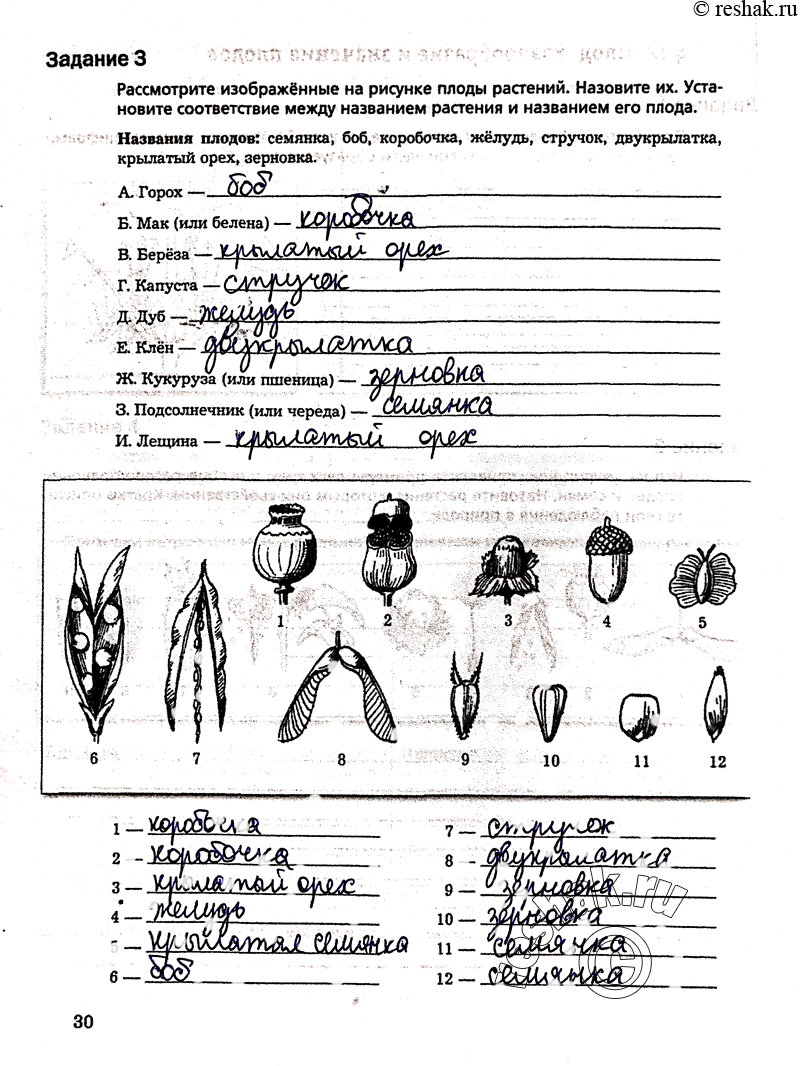 © reshak.ru
Задание 3
Рассмотрите изображённые на рисунке плоды растений. Назовите их. Уста-
новите соответствие между названием растения и названием его плода.
Названия плодов: семянка, боб, коробочка, жёлудь, стручок, двукрылатка,
крылатый орех, зерновка.
А. Горох — боб
Б. Мак (или белена) — коробочка
В. Берёза — крылатый орех
Г. Капуста — стручок
Д. Дуб — желудь
Е. Клён — двукрылатка
Ж. Кукуруза (или пшеница) — зерновка
З. Подсолнечник (или череда) — семянка
И. Лещина — крылатый орех
1 2 3 4 5
6 7 8 9 10 11 12
1 — коробочка
2 - коробочка
3 — крылатый орех
4 — желудь
5 — крылатая семянка
6 — боб
7 — стручок
8 - двукрылатка
9 — зерновка
10 — зерновка
11 — семячка
12 — семянка
30